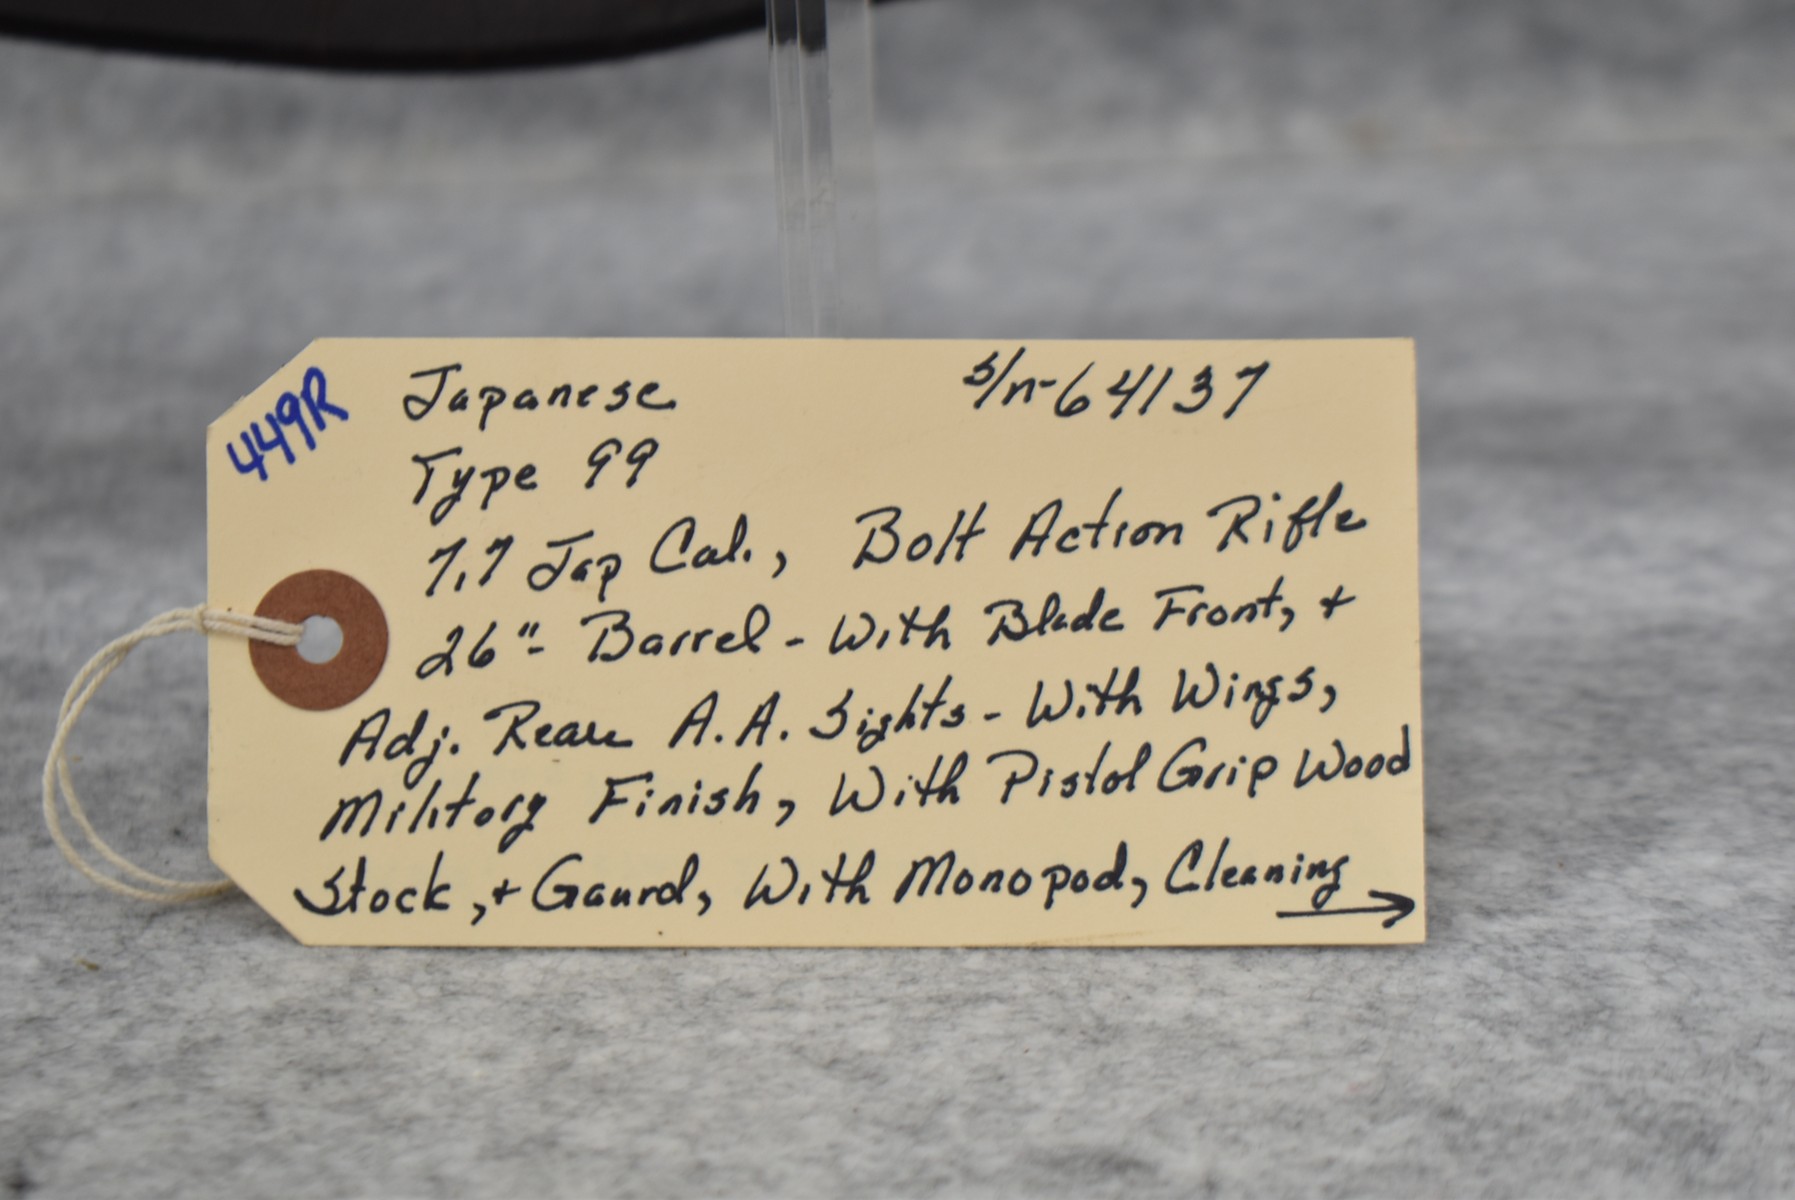 449R
Japanese s/n-64137
Type 99
7.7 Jap Cal., Bolt Action Rifle
26"- Barrel - With Blade Front, +
Adj. Rear A.A. Sights - With Wings,
Military Finish, With Pistol Grip Wood
Stock, + Gaurd, With Monopod, Cleaning
→